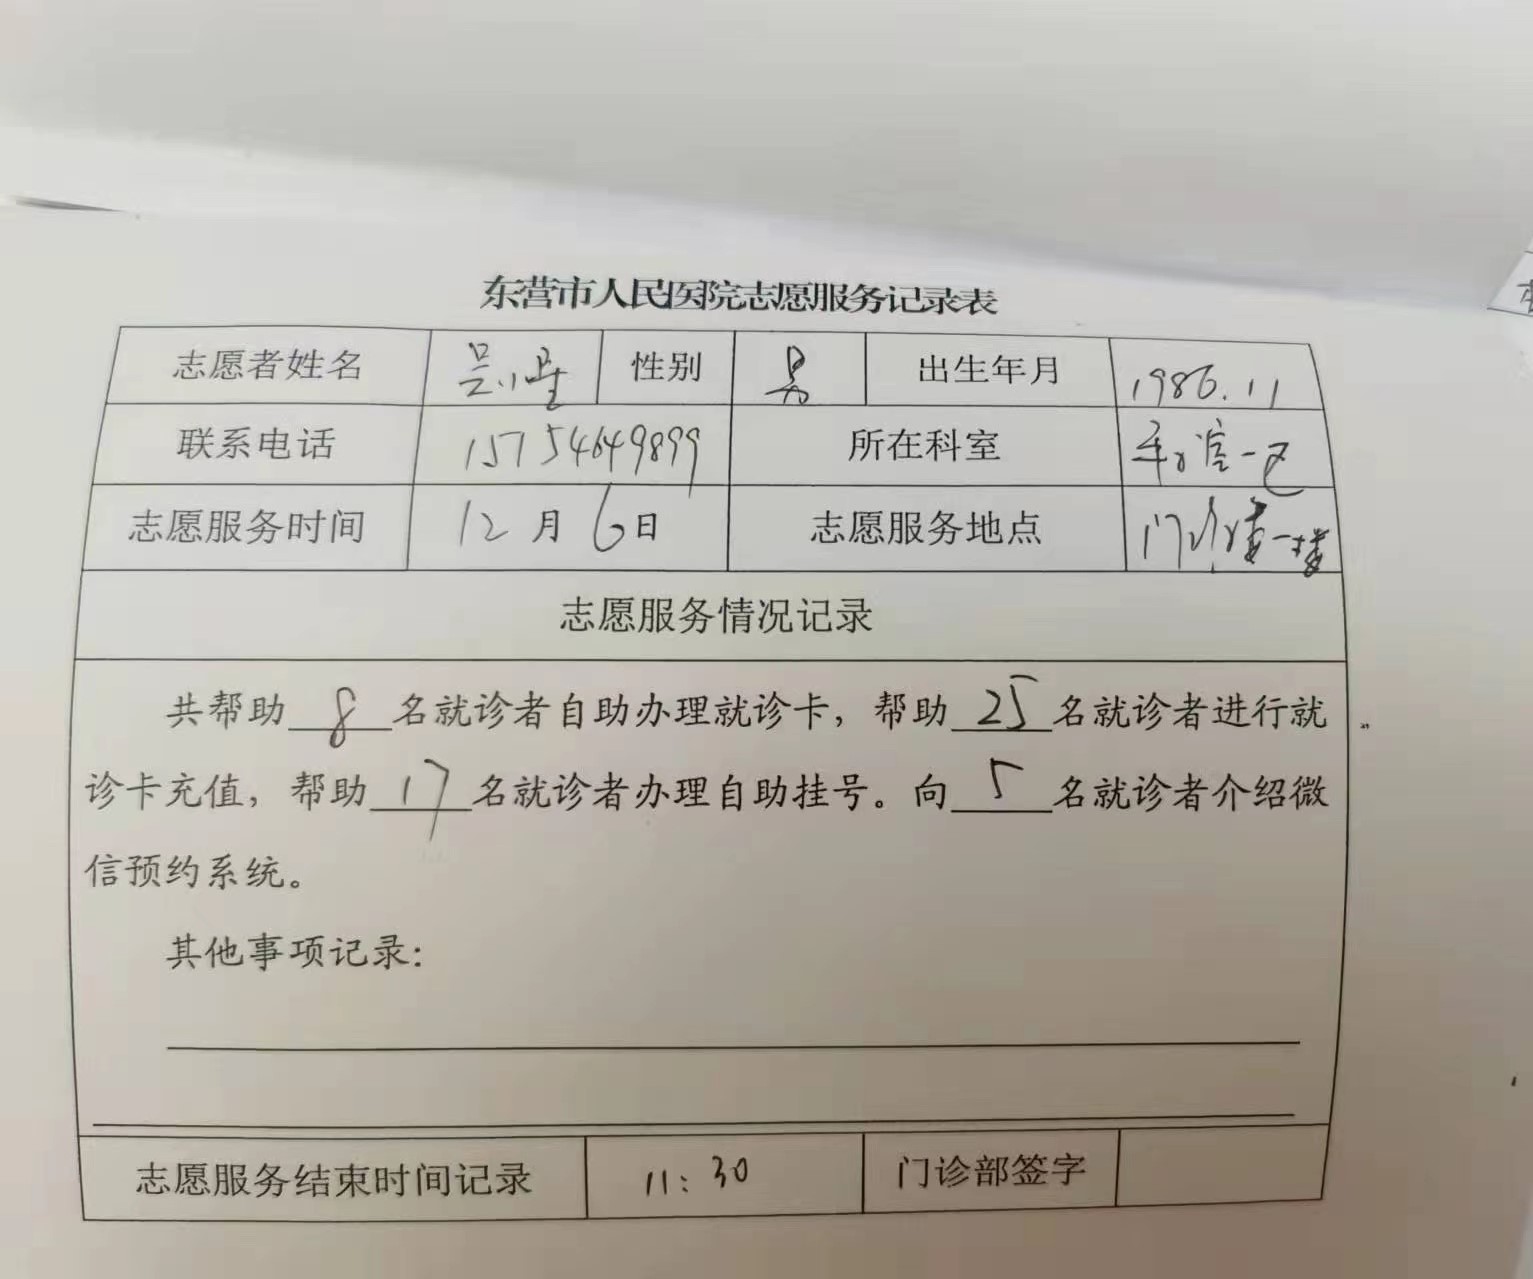 东营市人民医院志愿服务记录表
志愿者姓名 性别 男 出生年月 1986.11
联系电话 15754649899 所在科室
志愿服务时间 12月6日 志愿服务地点 门诊楼一楼
志愿服务情况记录
共帮助8名就诊者自助办理就诊卡，帮助25名就诊者进行就
诊卡充值，帮助17名就诊者办理自助挂号。向5名就诊者介绍微
信预约系统。
其他事项记录：
志愿服务结束时间记录 11:30 门诊部签字